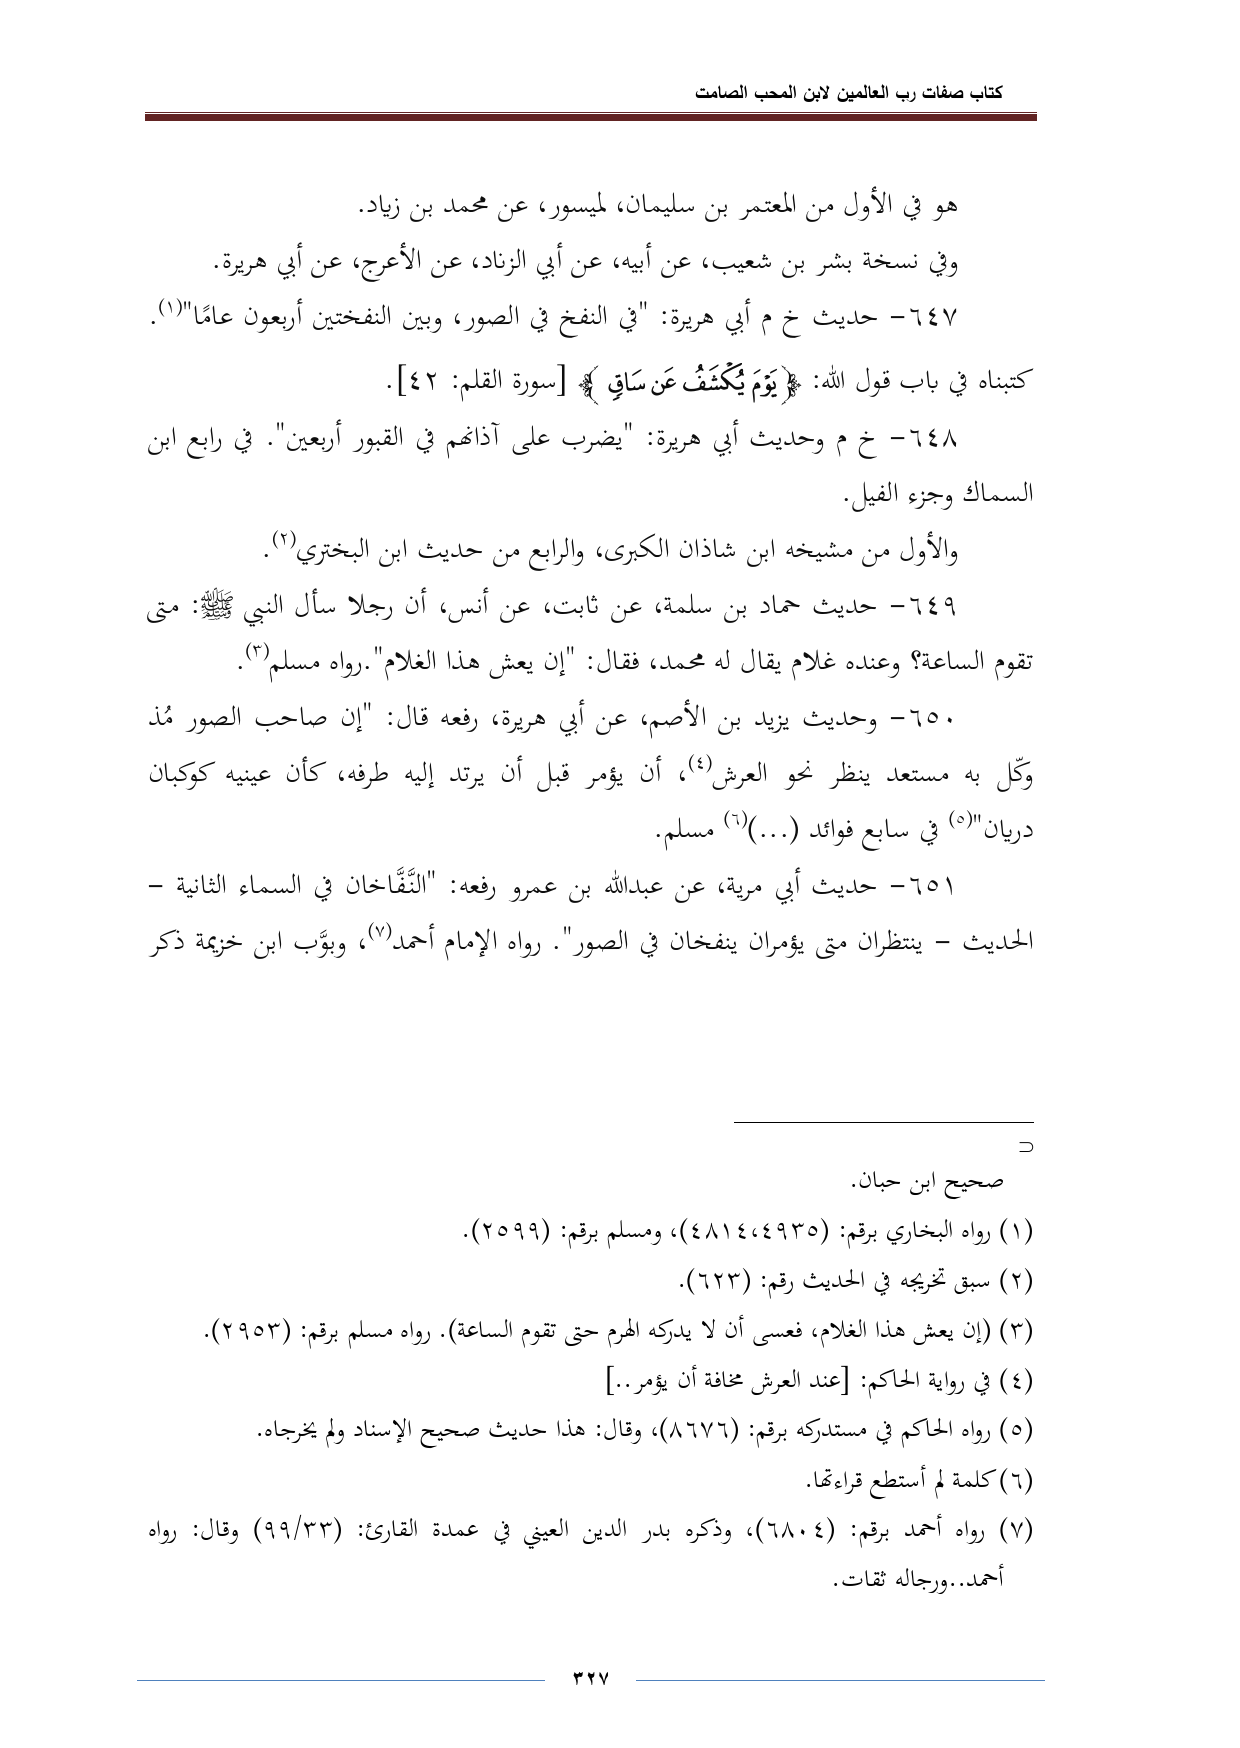 كتاب صفات رب العالمين لابن المحب الصامت
هو في الأول من المعتمر بن سليمان، لميسور، عن محمد بن زياد.
وفي نسخة بشر بن شعيب، عن أبيه، عن أبي الزناد، عن الأعرج، عن أبي هريرة.
٦٤٧- حديث خ م أبي هريرة: "في النفخ في الصور، وبين النفختين أربعون عامًا"(١).
كتبناه في باب قول الله: ﴿يَوْمَ يُكْشَفُ عَن سَاقٍ﴾ [سورة القلم: ٤٢].
٦٤٨- خ م وحديث أبي هريرة: "يضرب على آذانهم في القبور أربعين". في رابع ابن
السماك وجزء الفيل.
والأول من مشيخه ابن شاذان الكبرى، والرابع من حديث ابن البختري(٢).
٦٤٩- حديث حماد بن سلمة، عن ثابت، عن أنس، أن رجلا سأل النبي ﷺ: متى
تقوم الساعة؟ وعنده غلام يقال له محمد، فقال: "إن يعش هذا الغلام".رواه مسلم(٣).
٦٥٠- وحديث يزيد بن الأصم، عن أبي هريرة، رفعه قال: "إن صاحب الصور مُذ
وكّل به مستعد ينظر نحو العرش(٤)، أن يؤمر قبل أن يرتد إليه طرفه، كأن عينيه كوكبان
دريان"(٥) في سابع فوائد (...)(٦) مسلم.
٦٥١- حديث أبي مرية، عن عبدالله بن عمرو رفعه: "النَّفَّاخان في السماء الثانية –
الحديث – ينتظران متى يؤمران ينفخان في الصور". رواه الإمام أحمد(٧)، وبوَّب ابن خزيمة ذكر
⊃
صحيح ابن حبان.
(١) رواه البخاري برقم: (٤٨١٤،٤٩٣٥)، ومسلم برقم: (٢٥٩٩).
(٢) سبق تخريجه في الحديث رقم: (٦٢٣).
(٣) (إن يعش هذا الغلام، فعسى أن لا يدركه الهرم حتى تقوم الساعة). رواه مسلم برقم: (٢٩٥٣).
(٤) في رواية الحاكم: [عند العرش مخافة أن يؤمر..]
(٥) رواه الحاكم في مستدركه برقم: (٨٦٧٦)، وقال: هذا حديث صحيح الإسناد ولم يخرجاه.
(٦)كلمة لم أستطع قراءتها.
(٧) رواه أحمد برقم: (٦٨٠٤)، وذكره بدر الدين العيني في عمدة القارئ: (٩٩/٣٣) وقال: رواه
أحمد..ورجاله ثقات.
٣٢٧